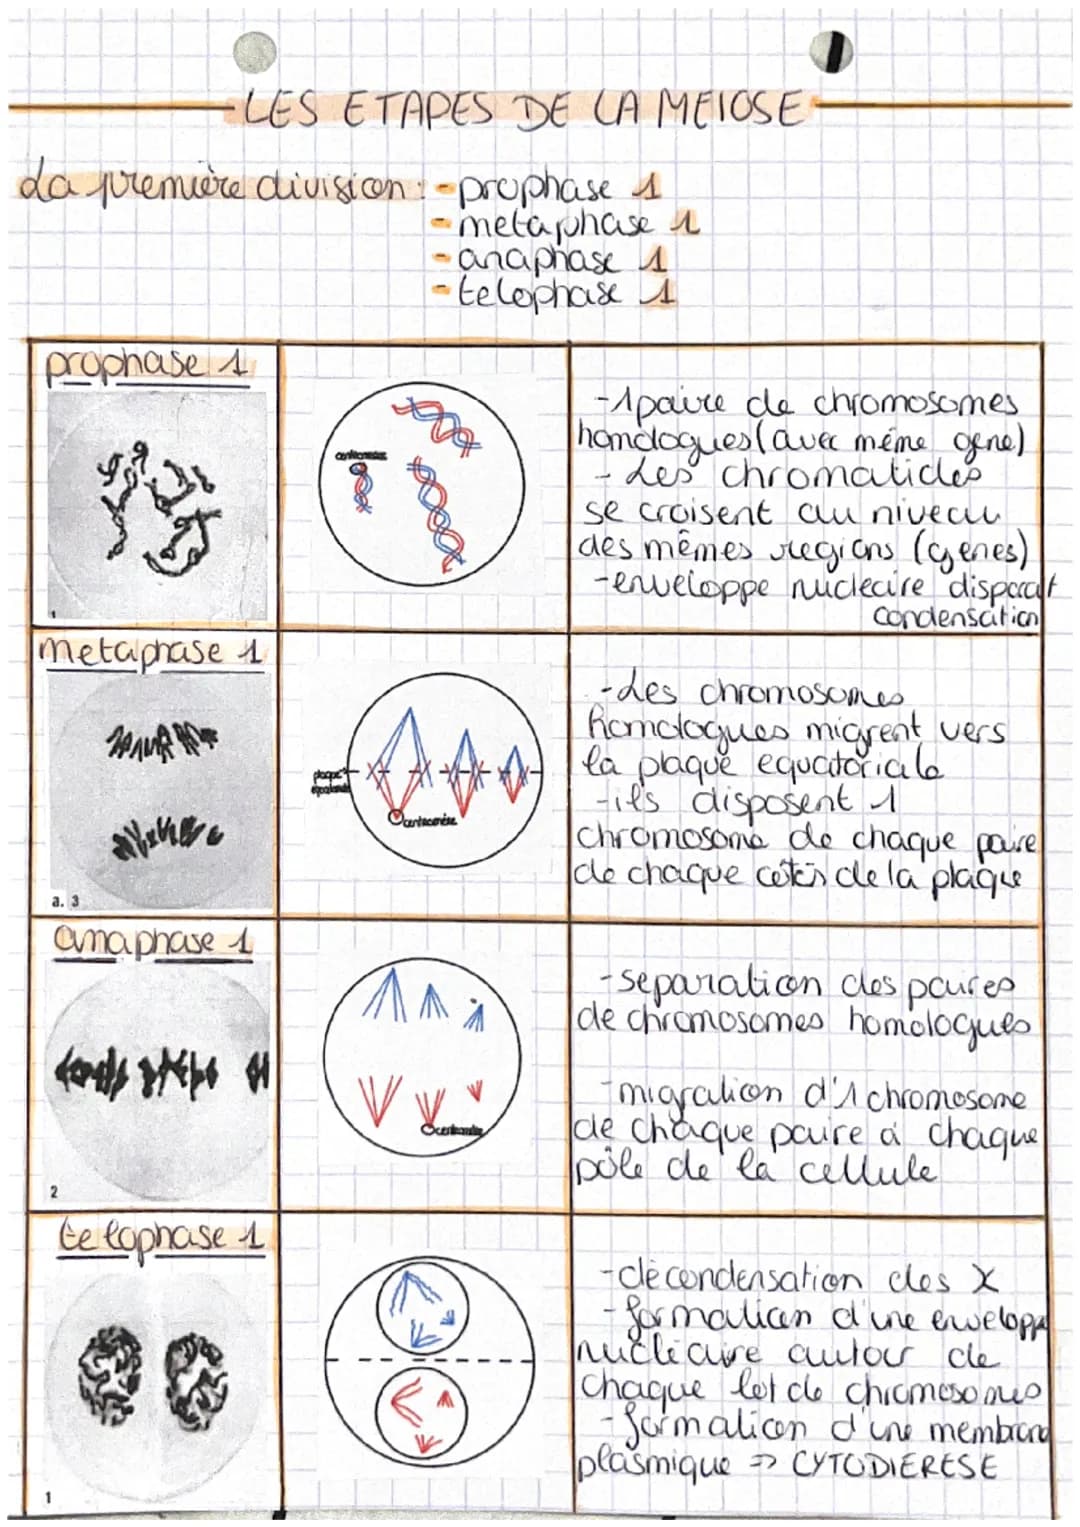 LES ETAPES DE LA MEIOSE
La première division : - prophase 1
- metaphase 1
- anaphase 1
- telophase 1
prophase 1
centromères
1
- 1 paire de chromosomes
homologues (avec même gene)
- Les chromatides
se croisent au niveau
des mêmes regions (genes)
- enveloppe nucleaire disparait
condensation
metaphase 1
plaque
équatoriale
centromère
a. 3
- Les chromosomes
homologues migrent vers
la plaque equatoriale
- ils disposent 1
chromosome de chaque paire
de chaque cotés de la plaque
anaphase 1
centromère
2
- separation des paires
de chromosomes homologues
- migration d'1 chromosome
de chaque paire à chaque
pôle de la cellule
telophase 1
1
- décondensation des X
- formation d'une enveloppe
nucléaire autour de
chaque lot de chromosomes
- formation d'une membrane
plasmique => CYTODIERESE